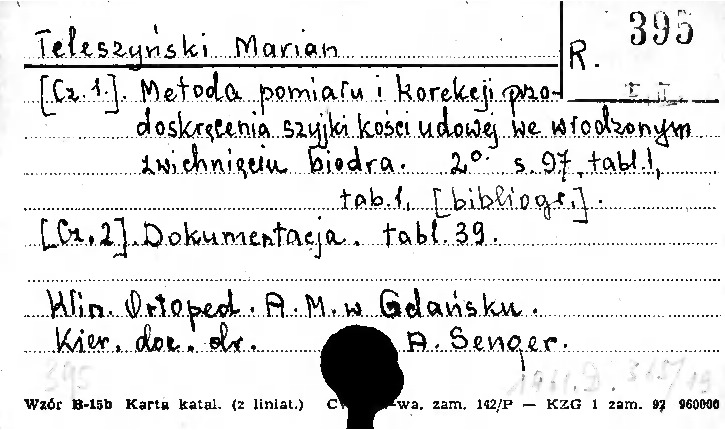 Teleszyński Marian
R. 395
I, II.
[Cz. 1.]. Metoda pomiaru i korekcji przo-
doskręcenia szyjki kości udowej we wrodzonym
zwichnięciu biodra. 2° s. 97, tabl. 1,
tab. 1, [bibliogr.].
[Cz. 2]. Dokumentacja. tabl. 39.
Klin. Ortoped. A. M. w Gdańsku.
Kier. doc. dr. A. Senger.
395
Wzór B-15b Karta katal. (z liniat.) -wa. zam. 142/P — KZG 1 zam. 92 960000